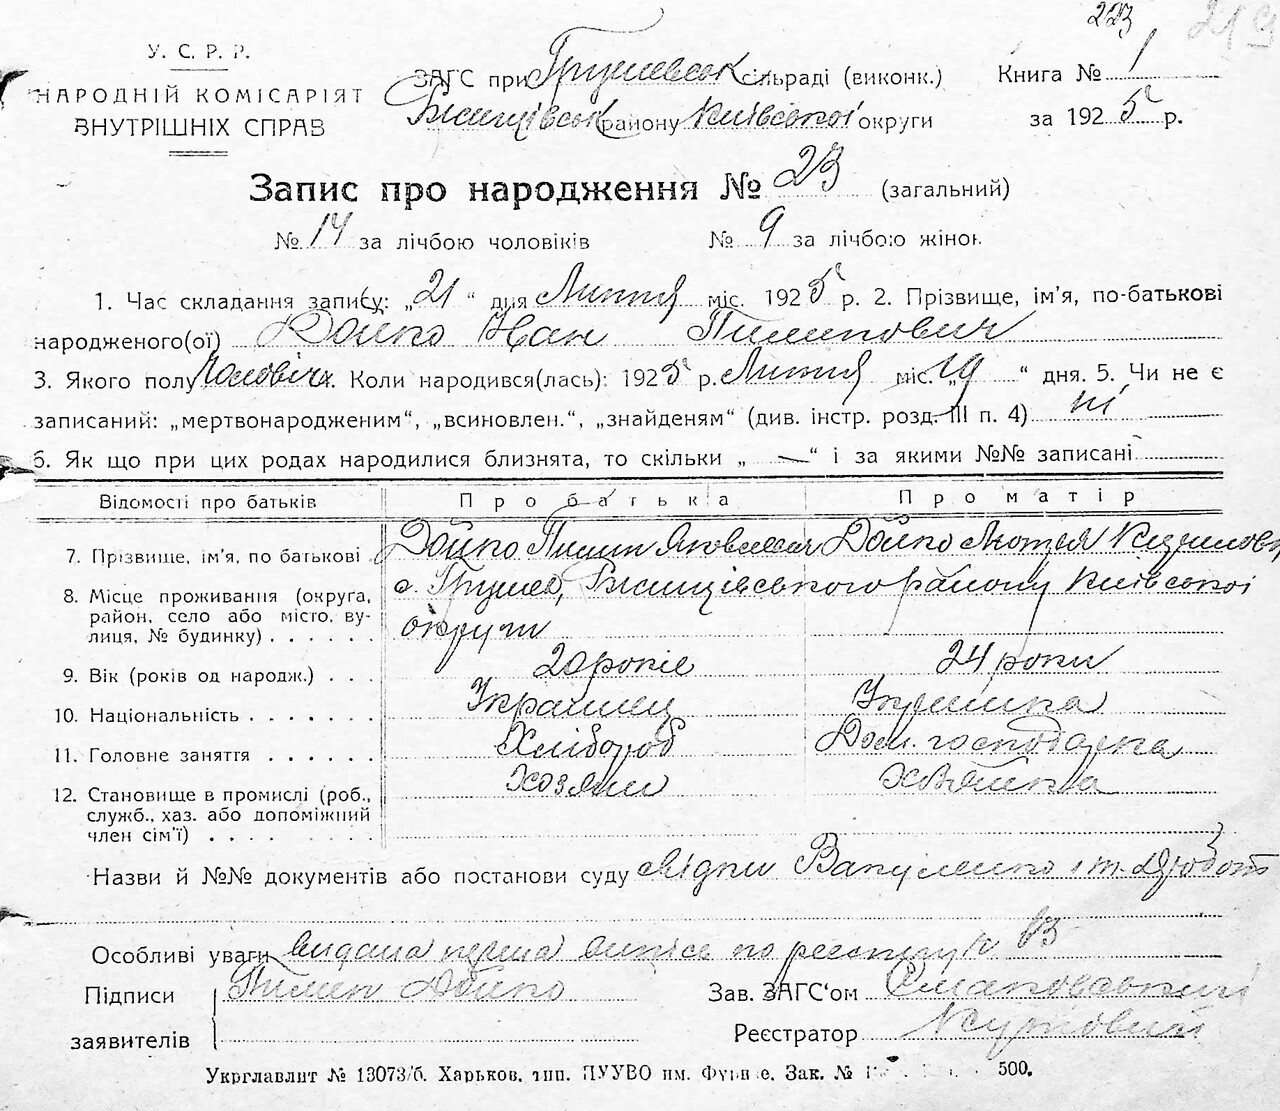 223
219
У. С. Р. Р.
НАРОДНІЙ КОМІСАРІЯТ
ВНУТРІШНІХ СПРАВ
ЗАГС при Грушевськ сільраді (виконк.)
Ржищівськ району Київської округи
Книга № 1
за 1925 р.
Запис про народження № 23 (загальний)
№ 14 за лічбою чоловіків № 9 за лічбою жінок
1. Час складання запису: „21“ дня Лютня міс. 1925 р. 2. Прізвище, ім'я, по-батькові
народженого(ої) Дойко Іван Пилипович
3. Якого полу Чоловіч. Коли народився(лась): 1925 р. Лютня міс. „19“ дня. 5. Чи не є
записаний: „мертвонародженим“, „всиновлен.“, „знайденям“ (див. інстр. розд. III п. 4) ні
6. Як що при цих родах народилися близнята, то скільки „—“ і за якими №№ записані
Відомості про батьків Про батька Про матір
7. Прізвище, ім'я, по батькові Дойко Пилип Яковлевич Дойко
8. Місце проживання (округа, район, село або місто, вулиця, № будинку) с. Грушев, Ржищівського району Київської
округи
9. Вік (років од народж.) 20 років 24 роки
10. Національність Українец Українка
11. Головне заняття Хлібороб Дом. господарка
12. Становище в промислі (роб., Хозяин Хозяйка
служб., хаз. або допоміжний
член сім'ї)
Назви й №№ документів або постанови суду Свідки Вакуленко і т.
Особливі уваги видана перша випись по реєстру №
Підписи Пилип Дойко Зав. ЗАГС'ом
заявителів Реєстратор
Укрглавлит № 13073/б. Харьков, тип. ПУУВО им. Фрунзе. Зак. № 500.